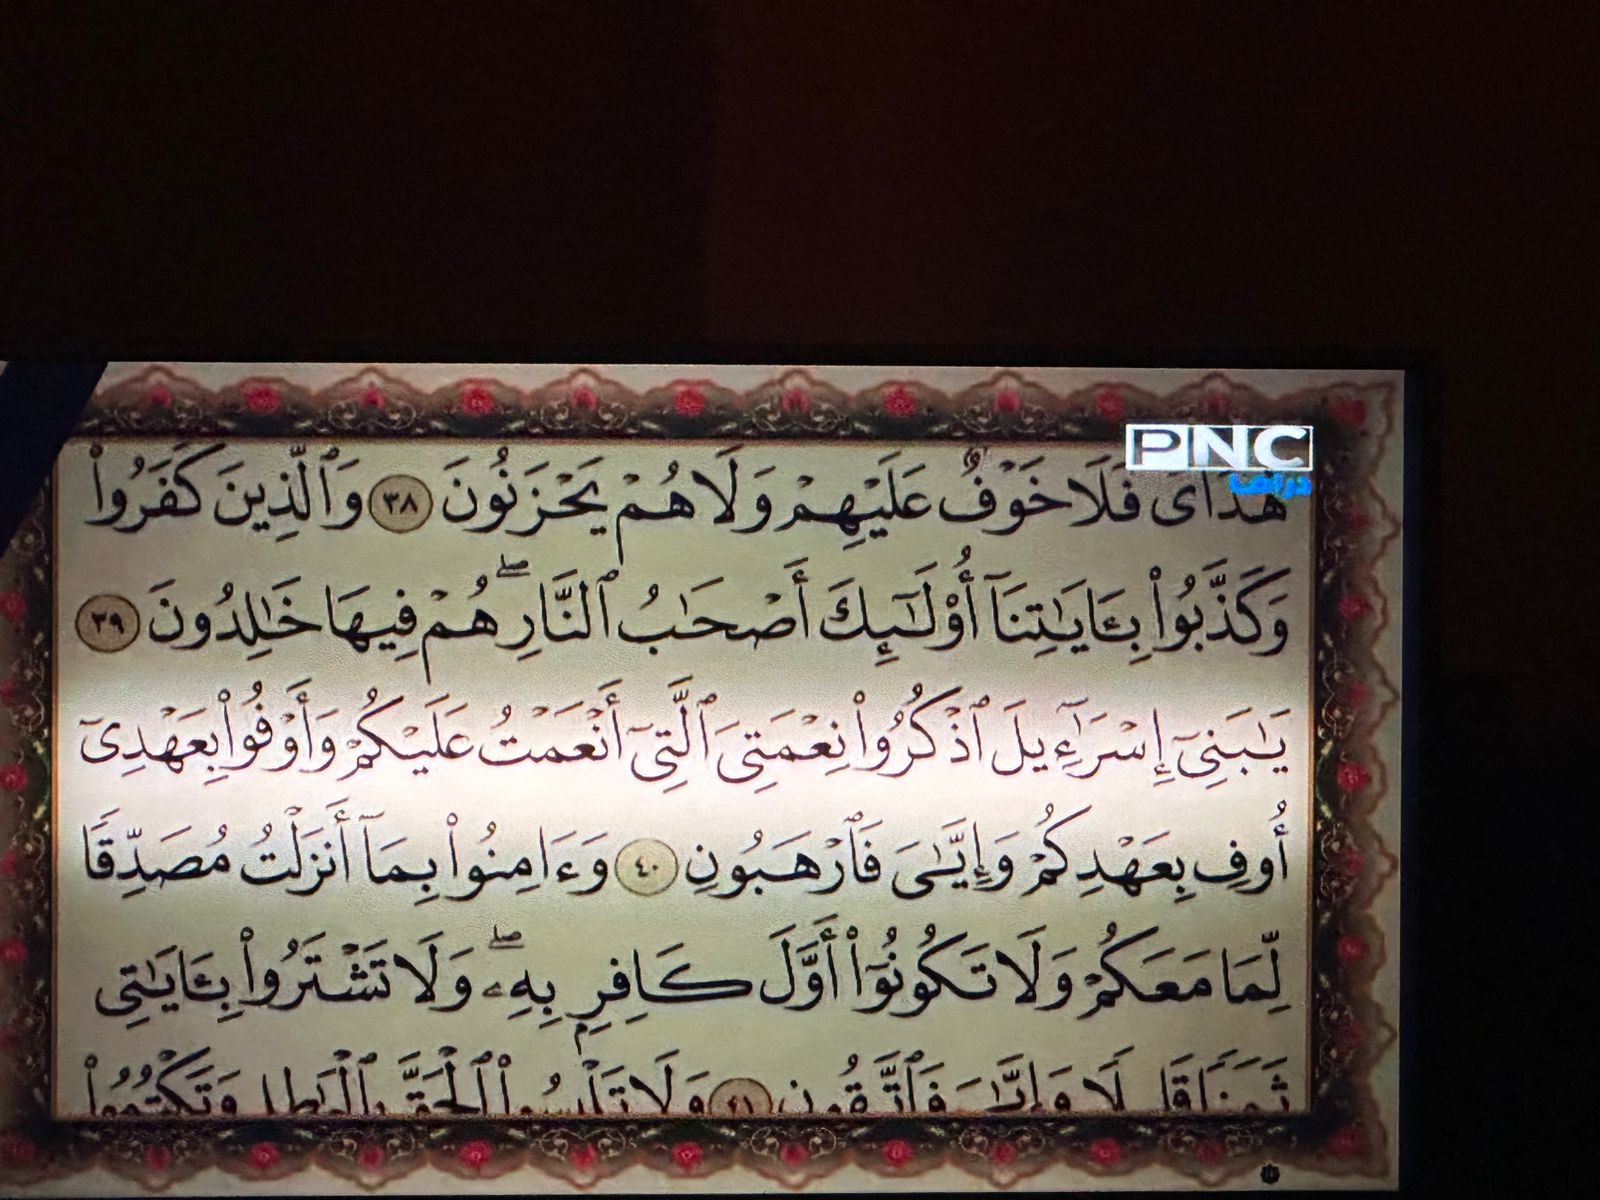 PNC
دراما
هُدَاىَ فَلَا خَوْفٌ عَلَيْهِمْ وَلَا هُمْ يَحْزَنُونَ ٣٨ وَٱلَّذِينَ كَفَرُوا۟
وَكَذَّبُوا۟ بِـَٔايَـٰتِنَآ أُو۟لَـٰٓئِكَ أَصْحَـٰبُ ٱلنَّارِ ۖ هُمْ فِيهَا خَـٰلِدُونَ ٣٩
يَـٰبَنِىٓ إِسْرَٰٓءِيلَ ٱذْكُرُوا۟ نِعْمَتِىَ ٱلَّتِىٓ أَنْعَمْتُ عَلَيْكُمْ وَأَوْفُوا۟ بِعَهْدِىٓ
أُوفِ بِعَهْدِكُمْ وَإِيَّـٰىَ فَٱرْهَبُونِ ٤٠ وَءَامِنُوا۟ بِمَآ أَنزَلْتُ مُصَدِّقًا
لِّمَا مَعَكُمْ وَلَا تَكُونُوٓا۟ أَوَّلَ كَافِرٍۭ بِهِۦ ۖ وَلَا تَشْتَرُوا۟ بِـَٔايَـٰتِى
ثَمَنًا قَلِيلًا وَإِيَّـٰىَ فَٱتَّقُونِ ٤١ وَلَا تَلْبِسُوا۟ ٱلْحَقَّ بِٱلْبَـٰطِلِ وَتَكْتُمُوا۟